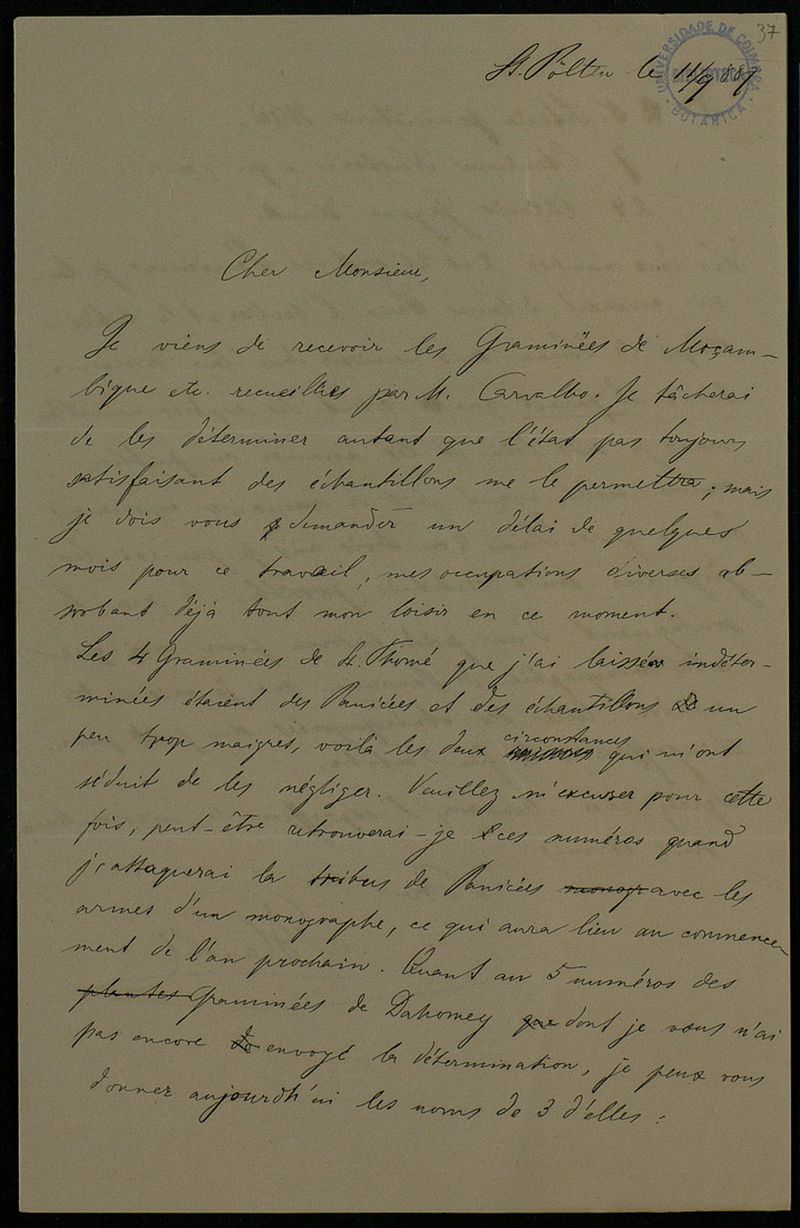 37
UNIVERSIDADE DE COIMBRA
BOTANICA
St. Pölten le 11/9 887
Cher Monsieur,
Je viens de recevoir les Graminées de Moçam-
bique etc. recueillies par M. Carvalho. Je tâcherai
de les déterminer autant que l'état pas toujours
satisfaisant des échantillons me le permettra; mais
je dois vous demander un délai de quelques
mois pour ce travail, mes occupations diverses ab-
sorbant déjà tout mon loisir en ce moment.
Les 4 Graminées de St. Thomé que j'ai laissées indéter-
minées étaient des Panicées et des échantillons un
peu trop maigres, voilà les deux circonstances qui m'ont
séduit de les négliger. Veuillez m'excuser pour cette
fois, peut-être retrouverai-je ces numéros quand
j'attaquerai la tribus de Panicées monogr avec les
armes d'un monographe, ce qui aura lieu au commence
ment de l'an prochain. Quant au 5 numéros des
plantes Graminées de Dahomey que dont je vous n'ai
pas encore envoyé la détermination, je peux vous
donner aujourdh'ui les noms de 3 d'elles: